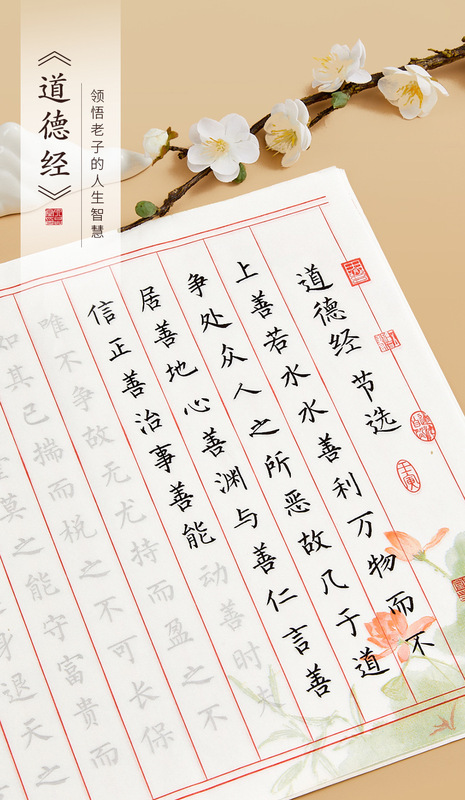 《道德经》
领悟老子的人生智慧
道德经节选
上善若水水善利万物而不
争处众人之所恶故几于道
居善地心善渊与善仁言善
信正善治事善能动善时
唯不争故无尤持而盈之不
如其己揣而梲之不可长保
莫之能守富贵而
身退天之
壬寅